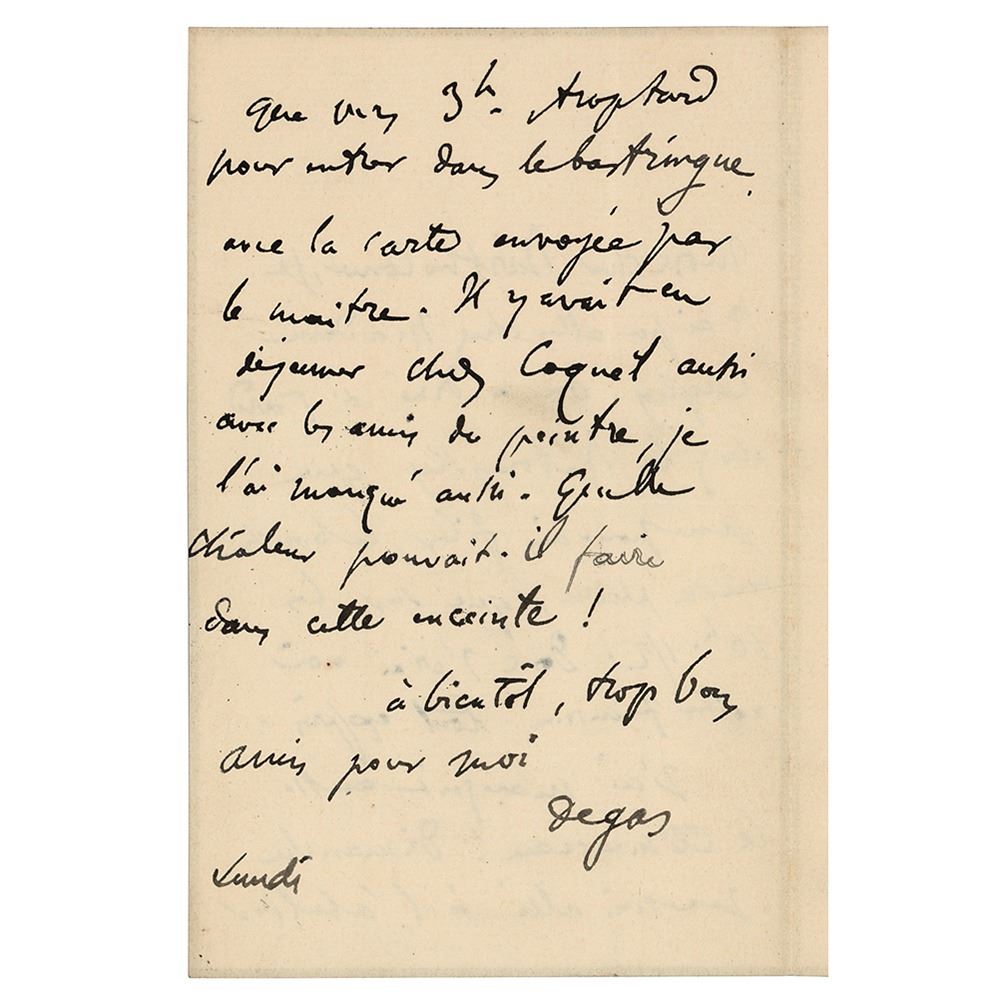 que vers 3h. trop tard
pour entrer dans le bastringue
avec la carte envoyée par
le maître. Il y avait eu
déjeuner chez Coquet aussi
avec les amis du peintre, je
l'ai manqué aussi. Quelle
chaleur pouvait-il faire
dans cette enceinte !
à bientôt, trop bons
amis pour moi
Degas
Lundi